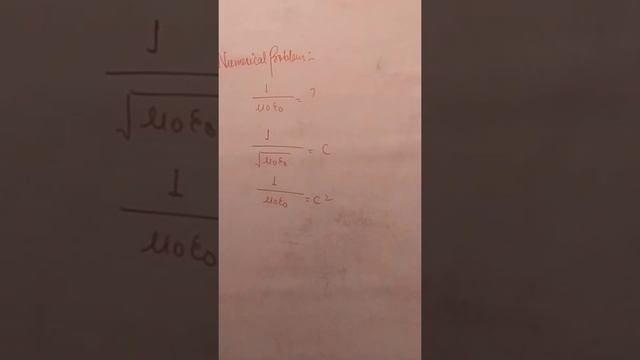 Numerical Problem:-
1/μ₀ε₀ = ?
1/√μ₀ε₀ = C
1/μ₀ε₀ = C²